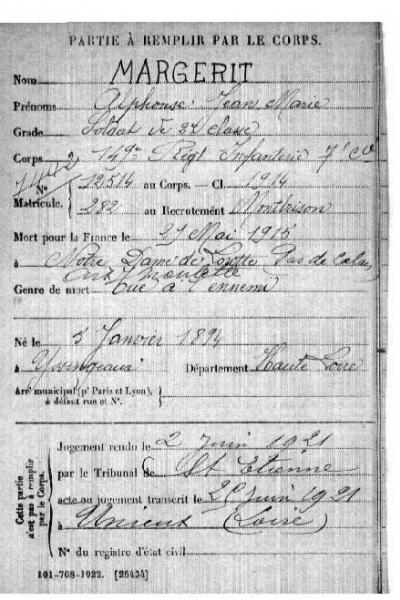 PARTIE À REMPLIR PAR LE CORPS.
Nom MARGERIT
Prénoms Alphonse Jean Marie
Grade Soldat de 2e classe
Corps 149e Régt Infanterie 7e Cie
N° 12514 au Corps. — Cl. 1914
Matricule. 282 au Recrutement Montbrison
Mort pour la France le 27 Mai 1915
à Notre Dame de Lorette (Pas de Calais)
Genre de mort Tué à l'ennemi
Né le 5 Janvier 1894
à Yssingeaux Département Haute Loire
Arr' municipal (p' Paris et Lyon),
à défaut rue et N°.
Cette partie
n'est pas à remplir
par le Corps.
Jugement rendu le 2 Juin 1921
par le Tribunal de St Etienne
acte ou jugement transcrit le Juin 1921
à Unieux (Loire)
N° du registre d'état civil
101-708-1922. [26434]